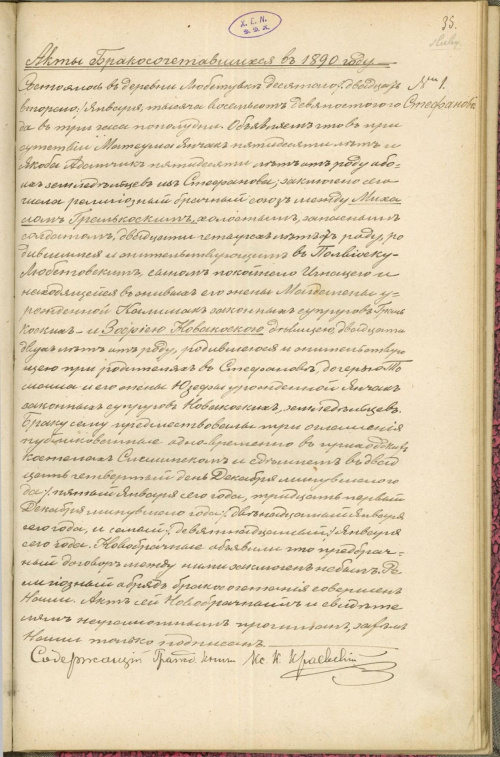 35.
Х. Е. N.
Акты Бракосочетавшихся въ 1890 году
№ 1.
Стефанова
Состоялось въ деревни Любстувкѣ десятаго /:двадцать
втораго:/ Января, тысяча восемьсотъ девяностаго го
да въ три часа пополудни. Объявляемъ что въ при
сутствіи Матеуша Янчака пятидесяти лѣтъ и
Якоба Адамчикъ пятидесяти лѣтъ отъ роду обо-
ихъ земледѣльцевъ изъ Стефанова; заключено сего
числа религіозный брачный союзъ между Миха
ломъ холостымъ, запаснымъ
солдатомъ, двадцати четырехъ лѣтъ роду, ро
дившимся и жительствующимъ въ
сыномъ покойнаго и
находящейся въ живыхъ его жены Магдалены у-
рожденной законныхъ супруговъ
и Зофіею Новаковскою дѣвицею, двадцати
двухъ лѣтъ отъ роду, родившеюся и жительствую
щею при родителяхъ въ Стефановѣ, дочерью То
маша и его жены Юзефы урожденной Янчакъ
законныхъ супруговъ Новаковскихъ, земледѣльцевъ.
Браку сему предшествовали три оглашенія
публикованные одновременно въ приходскихъ
костелахъ и въ двад
цать четвертый день Декабря минувшаго
года /: пятый Января сего года, тридцать первый
Декабря минувшаго года /: двѣнадцатый Января
сего года, и седьмый /: девятнадцатый :/ Января
сего года. Новобрачные объявили что предбрач-
ный договоръ между ними заключенъ небылъ. Ре
лигіозный обрядъ бракосочетанія совершенъ
Нами. Актъ сей Новобрачнымъ и свидѣте
лямъ неграмотнымъ прочитанъ, затѣмъ
Нами только подписанъ
Содержащій Гражд. книги Кс. К.